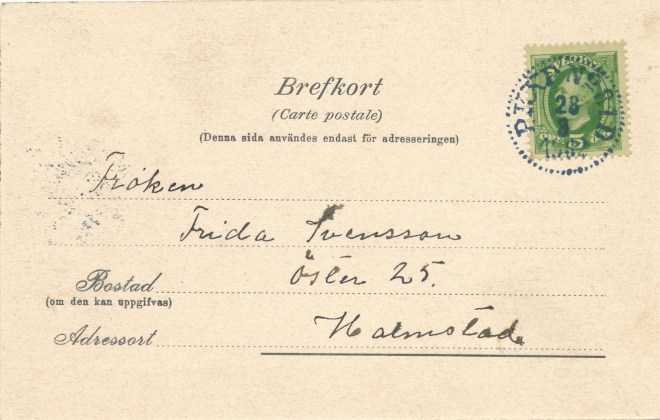 Brefkort
(Carte postale)
(Denna sida användes endast för adresseringen)
28
5
Fröken
Frida Svensson
Bostad Öster 25.
(om den kan uppgifvas)
Adressort Halmstad.